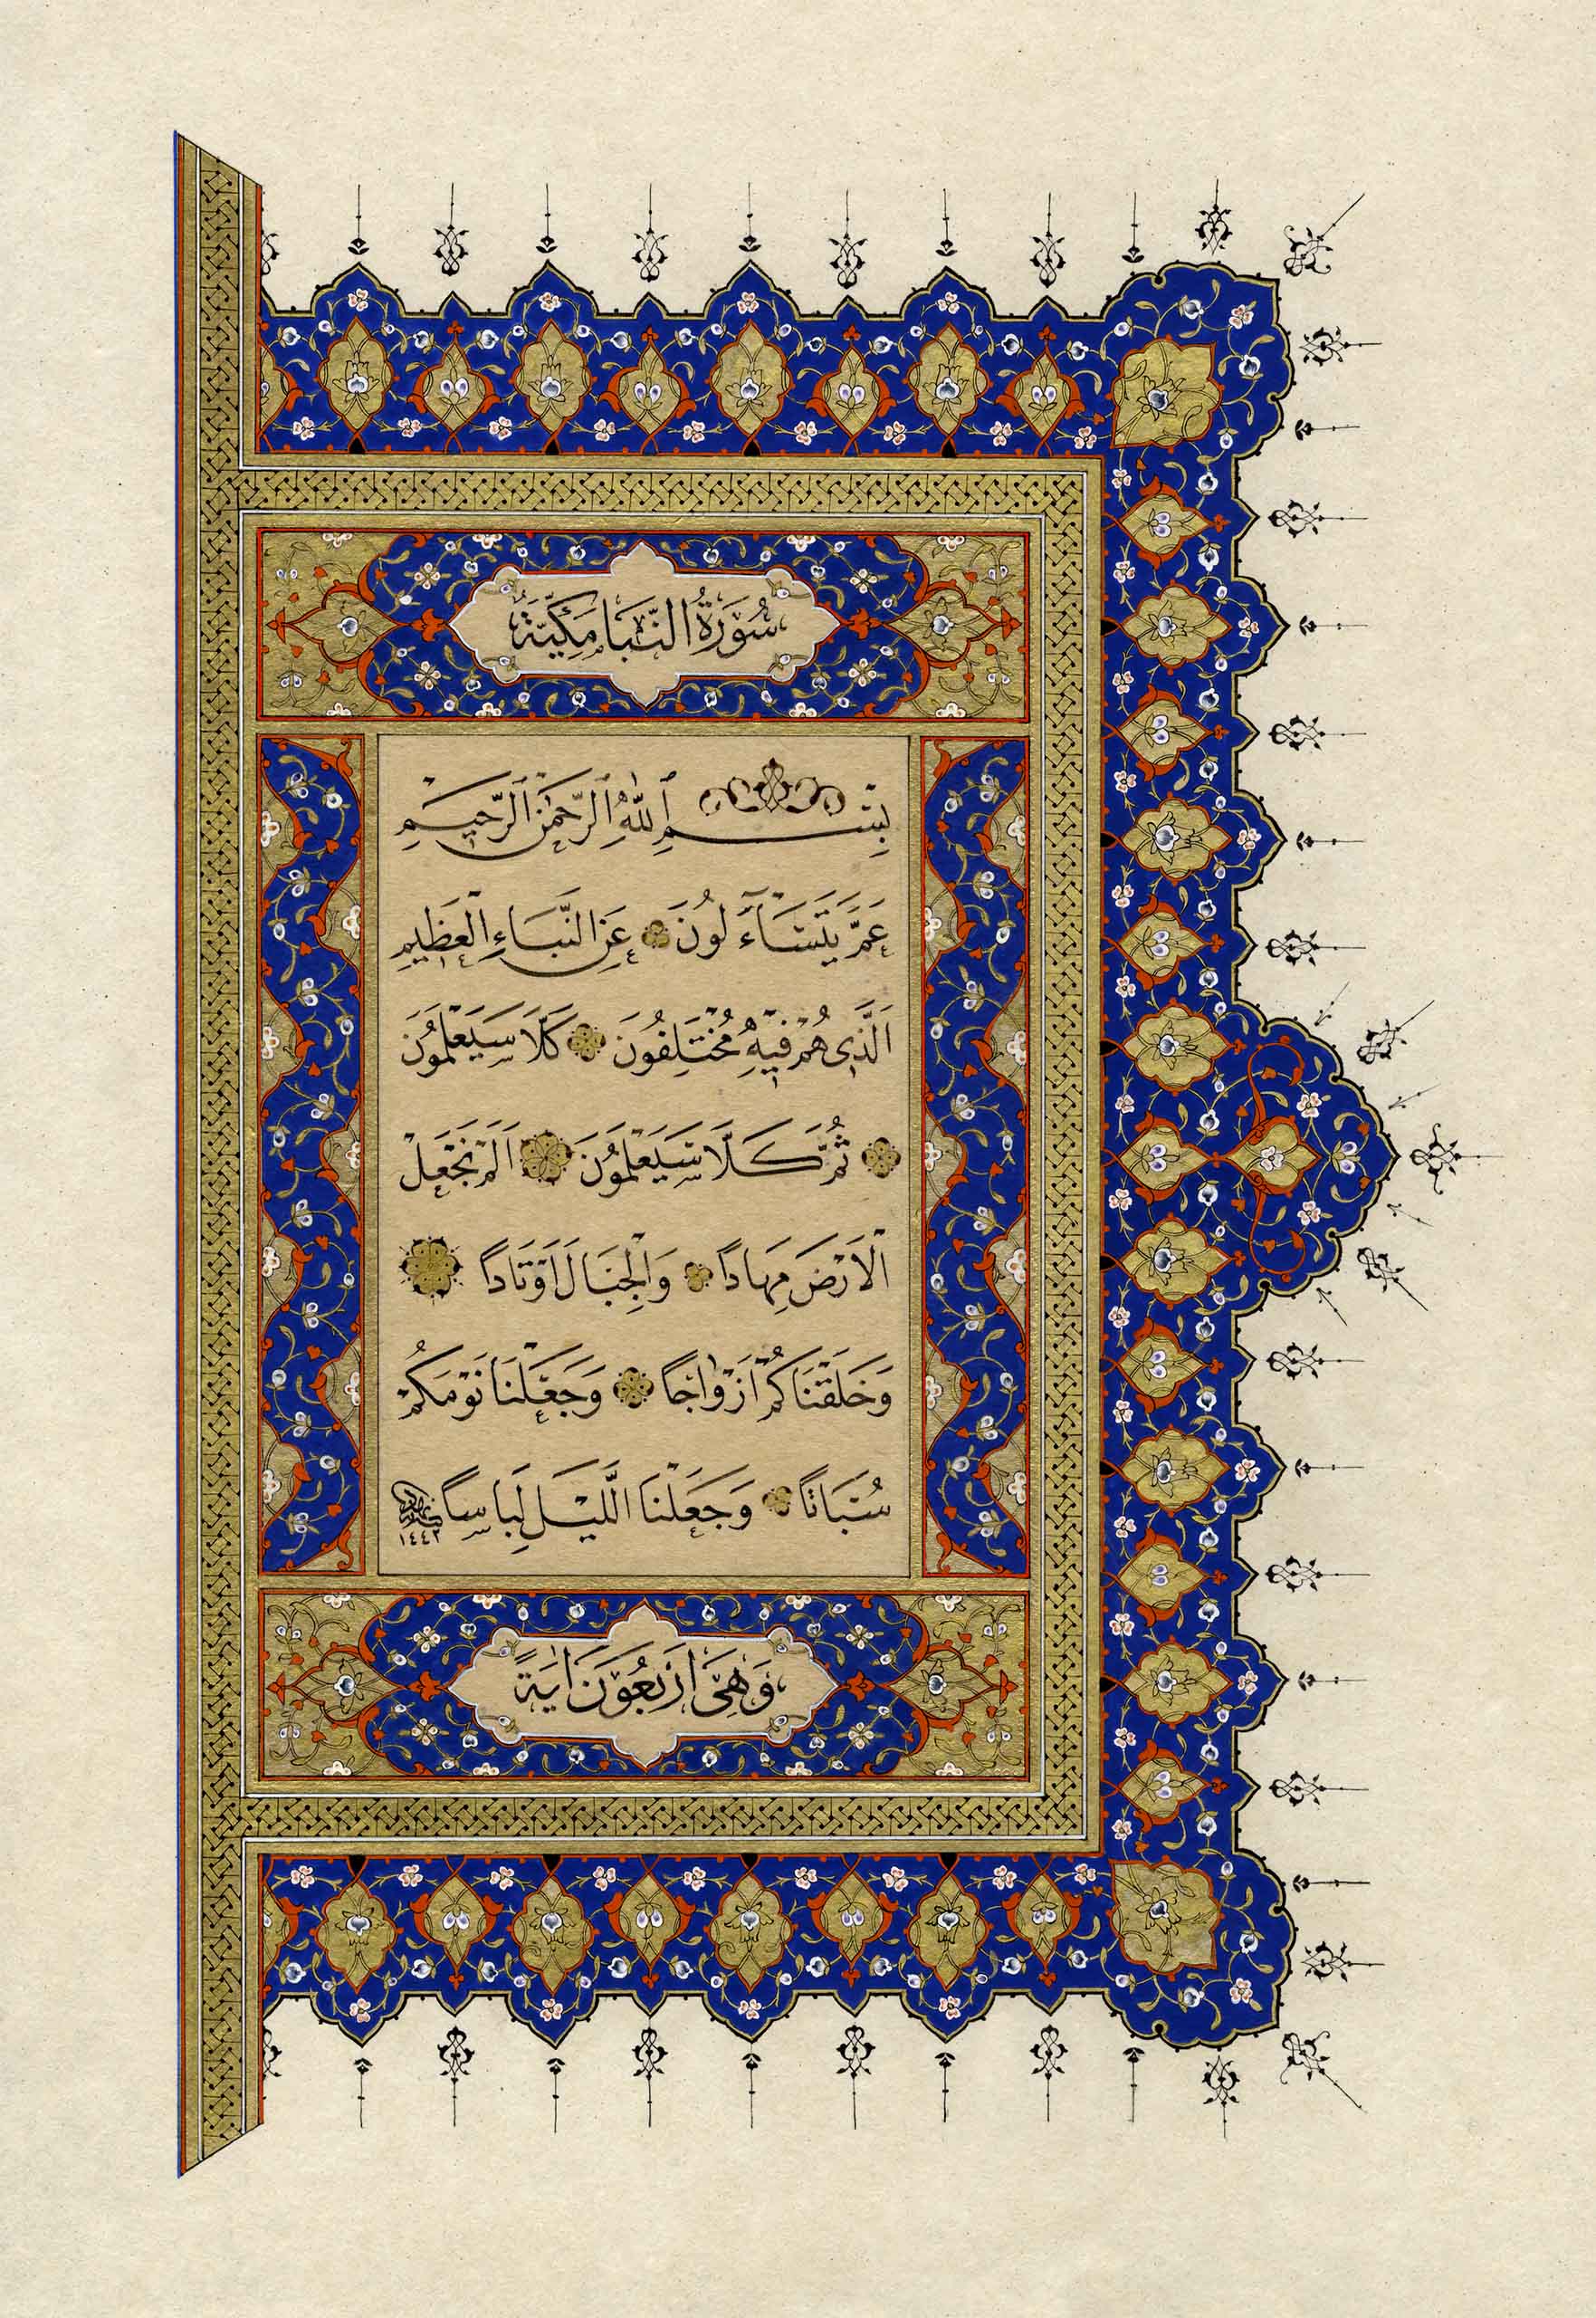 سُورَةُ النَّبَا مَكِّيَّةٌ
بِسْمِ ٱللّٰهِ ٱلرَّحْمٰنِ ٱلرَّحِيمِ
عَمَّ يَتَسَآءَلُونَ عَنِ النَّبَاءِ الْعَظِيمِ
اَلَّذِى هُمْ فِيْهِ مُخْتَلِفُونَ كَلَّا سَيَعْلَمُونَ
ثُمَّ كَلَّا سَيَعْلَمُونَ اَلَمْ نَجْعَلْ
الْاَرْضَ مِهَادًا وَالْجِبَالَ اَوْتَادًا
وَخَلَقْنَاكُمْ اَزْوَاجًا وَجَعَلْنَا نَوْمَكُمْ
سُبَاتًا وَجَعَلْنَا الَّليْلَ لِبَاسًا
١٤٤٢
وَهِىَ اَرْبَعُوْنَ اٰيَةً